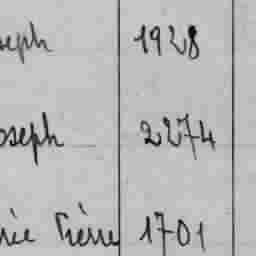 seph 1928
oseph 2274
rée Pierre 1701